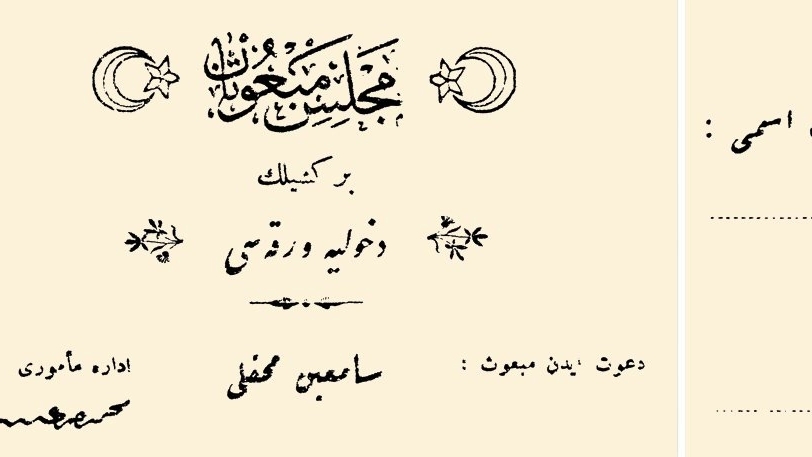 مجلس مبعوثان
بر كشيلك
دخوليه ورقه سی
دعوت ايدن مبعوث :
سامعين محفلی
اداره مأموری
اسمی :